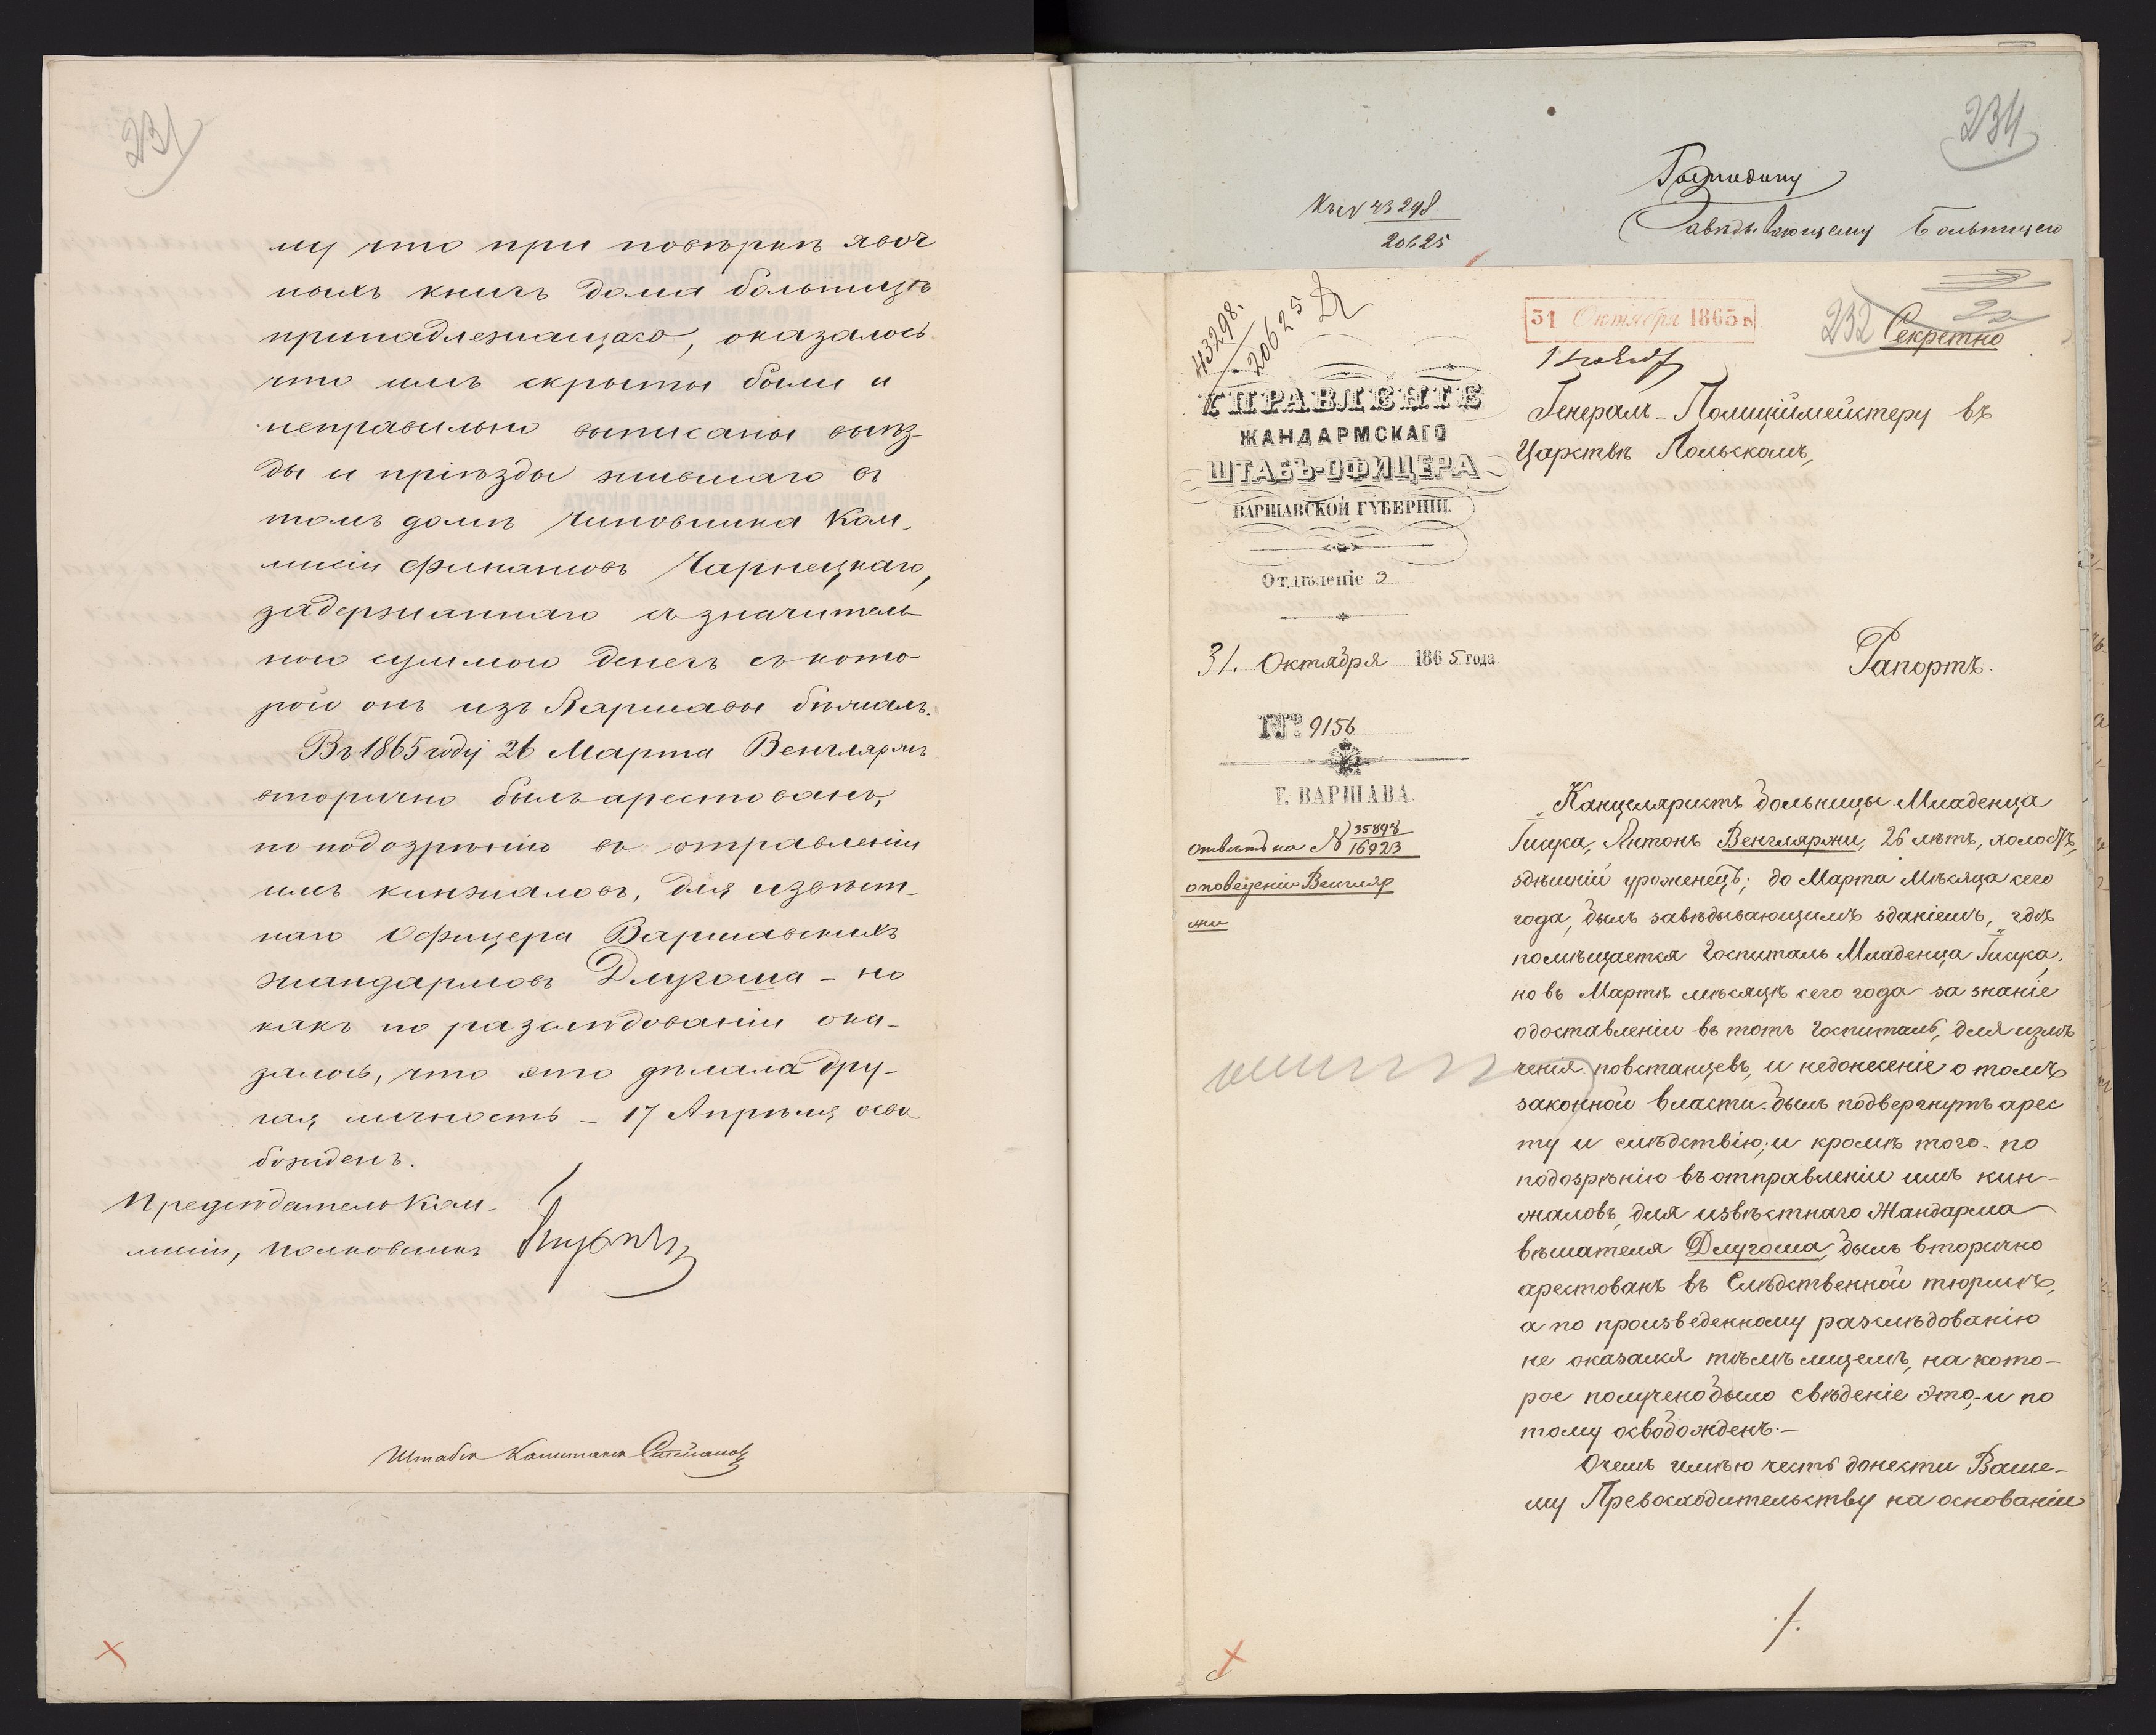 231
му что при повѣркѣ явоч
ныхъ книгъ дома больницѣ
принадлежащаго, оказалось
что имъ скрыты были и
неправильно выписаны выѣз-
ды и пріѣзды жившаго въ
томъ домѣ чиновника Ком-
мисіи Финансовъ Чарнецкаго,
задержаннаго съ значитель-
ною суммою денегъ съ кото
рой онъ изъ Варшавы бѣжалъ.
Въ 1865 году 26 Марта Венгляржъ
вторично былъ арестованъ,
по подозрѣнію въ отправленіи
имъ кинжаловъ, для извѣст-
наго Офицера Варшавскихъ
жандармовъ Длугоша – но
какъ по разслѣдованіи ока-
залось, что это дѣлала дру-
гая личность – 17 Апрѣля осво
божденъ.
Предсѣдатель Ком-
мисіи, Полковникъ
Штабсъ Капитанъ
234
Къ № 43298
20625
Господину
Завѣдывающему Больницею
43298.
20625
31 Октября 1865 г.
232
Секретно
УПРАВЛЕНІЕ
ЖАНДАРМСКАГО
ШТАБЪ-ОФИЦЕРА
ВАРШАВСКОЙ ГУБЕРНІИ.
Отдѣленіе 3
31. Октября 1865 года
№ 9156
Г. ВАРШАВА.
отвѣтъ на № 35898
16923
о поведеніи Венгляр
жи
Генералъ-Полиціймейстеру въ
Царствѣ Польскомъ,
Рапортъ.
Канцеляристъ больницы Младенца
Іисуса, Антонъ Венгляржи, 26 лѣтъ, холостъ,
здѣшній уроженецъ; до Марта Мѣсяца сего
года, былъ завѣдывающимъ зданіемъ, гдѣ
помѣщается Госпиталь Младенца Іисуса,
но въ Мартѣ мѣсяцѣ сего года за знаніе
о доставленіи въ тотъ госпиталь, для излѣ
ченія повстанцевъ, и недонесеніе о томъ
законной власти былъ подвергнутъ арес
ту и слѣдствію; и кромѣ того – по
подозрѣнію въ отправленіи имъ кин-
жаловъ, для извѣстнаго Жандарма
вѣшателя Длугоша, былъ вторично
арестованъ въ Слѣдственной тюрьмѣ,
а по произведенному разслѣдованію
не оказался тѣмъ лицемъ, на кото-
рое получено было свѣденіе это,– и по
тому освобожденъ.–
О чемъ имѣю честь донести Ваше-
му Превосходительству на основаніи
./.